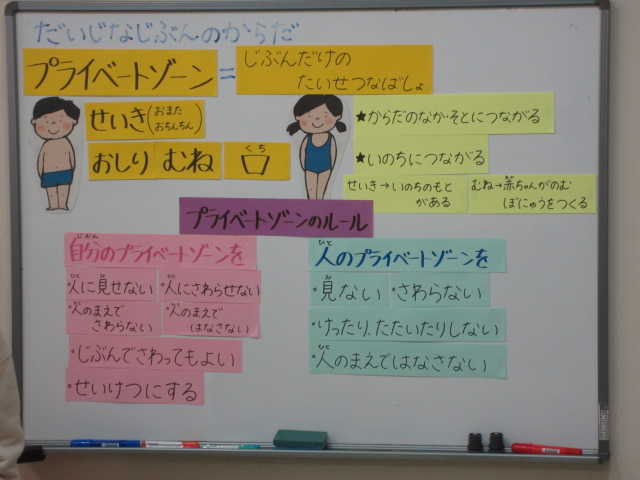 だいじなじぶんのからだ
プライベートゾーン = じぶんだけの
たいせつなばしょ
せいき(おまた
おちんちん)
おしり むね 口
くち
★からだのなか・そとにつながる
★いのちにつながる
せいき→いのちのもと
がある
むね→赤ちゃんがのむ
ぼにゅうをつくる
プライベートゾーンのルール
自分のプライベートゾーンを
じぶん
・人に見せない
ひと み
・人にさわらせない
ひと
・人のまえで
ひと
さわらない
・人のまえで
ひと
はなさない
・じぶんでさわってもよい
・せいけつにする
人のプライベートゾーンを
ひと
・見ない
み
・さわらない
・けったり、たたいたりしない
・人のまえではなさない
ひと